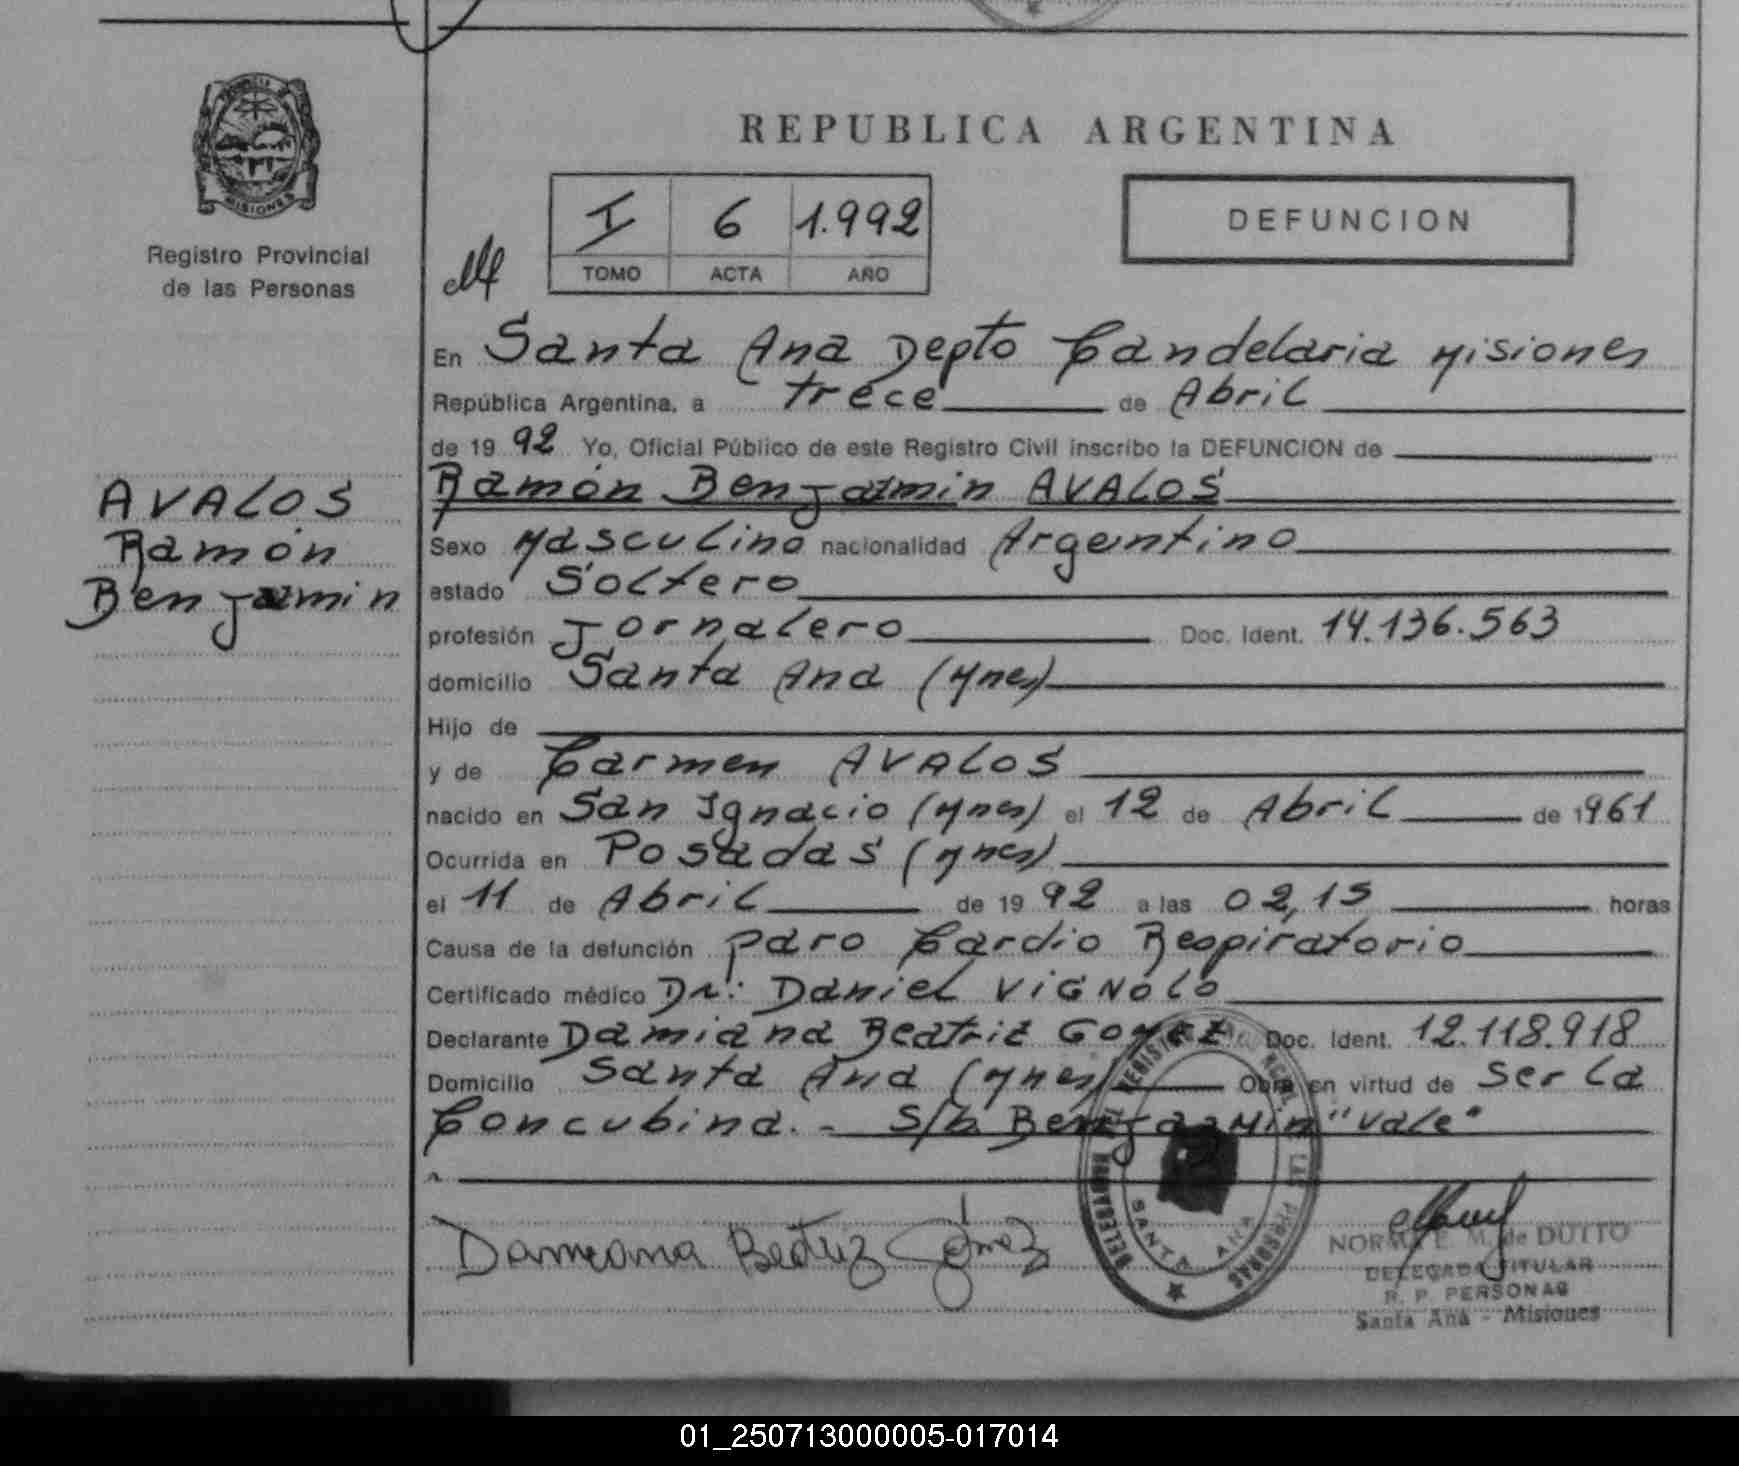 REPUBLICA ARGENTINA
PROVINCIA DE
MISIONES
Registro Provincial
de las Personas
I 6 1.992
TOMO ACTA AÑO
DEFUNCION
En Santa Ana Depto Candelaria Misiones
República Argentina, a trece de Abril
de 19 92 Yo, Oficial Público de este Registro Civil inscribo la DEFUNCION de
Ramón Benjamin AVALOS
AVALOS
Ramón
Benjamin
Sexo Masculino nacionalidad Argentino
estado Soltero
profesión Jornalero Doc. Ident. 14.136.563
domicilio Santa Ana (Mnes)
Hijo de
y de Carmen AVALOS
nacido en San Ignacio (Mnes) el 12 de Abril de 1961
Ocurrida en Posadas (Mnes)
el 11 de Abril de 19 92 a las 02,15 horas
Causa de la defunción Paro Cardio Respiratorio
Certificado médico Dr: Daniel VIGNOLO
Declarante Damiana Beatriz Gomez Doc. Ident. 12.118.918
Domicilio Santa Ana (Mnes) Obra en virtud de Ser la
Concubina. - S/b Benjamin "Vale"
Damiana Beatriz Gómez
SANTA ANA
NORMA E. M. de DUTTO
DELEGADA TITULAR
R. P. PERSONAS
Santa Ana - Misiones
01_250713000005-017014